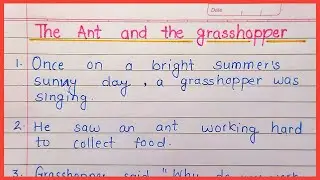 Date
The Ant and the grasshopper
1. Once on a bright summer's
sunny day, a grasshopper was
singing.
2. He saw an ant working hard
to collect food.
3. Grasshopper said "Why do